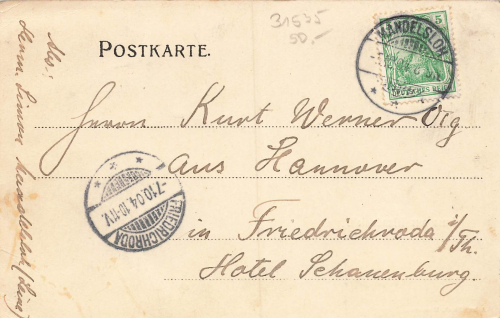 31535
50.-
POSTKARTE.
MANDELSLOH
5
DEUTSCHES REICH
Herrn Kurt Werner Vig
aus Hannover
in Friedrichroda i/Th.
Hotel Schauenburg
FRIEDRICHRODA
-7.10.04.10-11V.
Abs:
Simon
Mandelsloh (Leine)